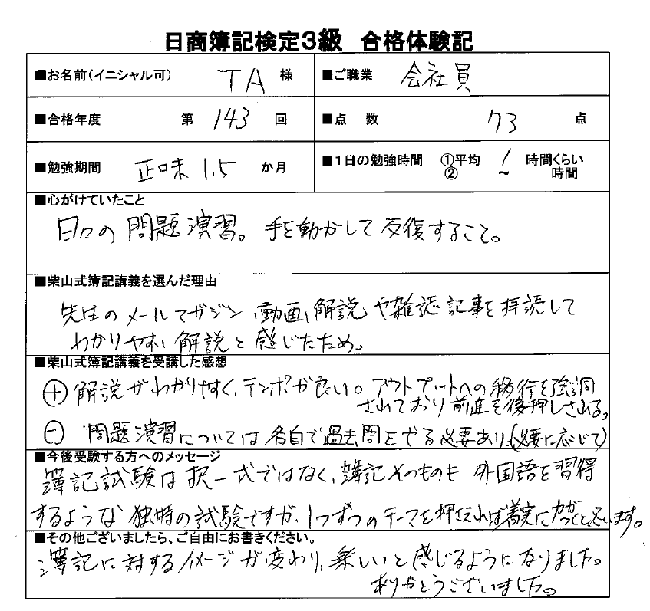 日商簿記検定3級 合格体験記
■お名前(イニシャル可) TA 様 ■ご職業 会社員
■合格年度 第 143 回 ■点 数 73 点
■勉強期間 正味 1.5 か月 ■1日の勉強時間 ①平均 1 時間くらい
② ~ 時間
■心がけていたこと
日々の問題演習。手を動かして反復すること。
■柴山式簿記講義を選んだ理由
先生のメールマガジン、動画、解説や雑誌記事を拝読して
わかりやすい解説と感じたため。
■柴山式簿記講義を受講した感想
⊕ 解説がわかりやすく、テンポが良い。アウトプットへの移行を強調
されており前進を後押しされる。
⊖ 問題演習については各自で過去問をやる必要あり(必要に応じて)
■今後受験する方へのメッセージ
簿記試験は択一式ではなく、簿記そのものも外国語を習得
するような独特の試験ですが、1つずつのテーマを押さえれば着実に力がつくと思います。
■その他ございましたら、ご自由にお書きください。
簿記に対するイメージが変わり、楽しいと感じるようになりました。
ありがとうございました。